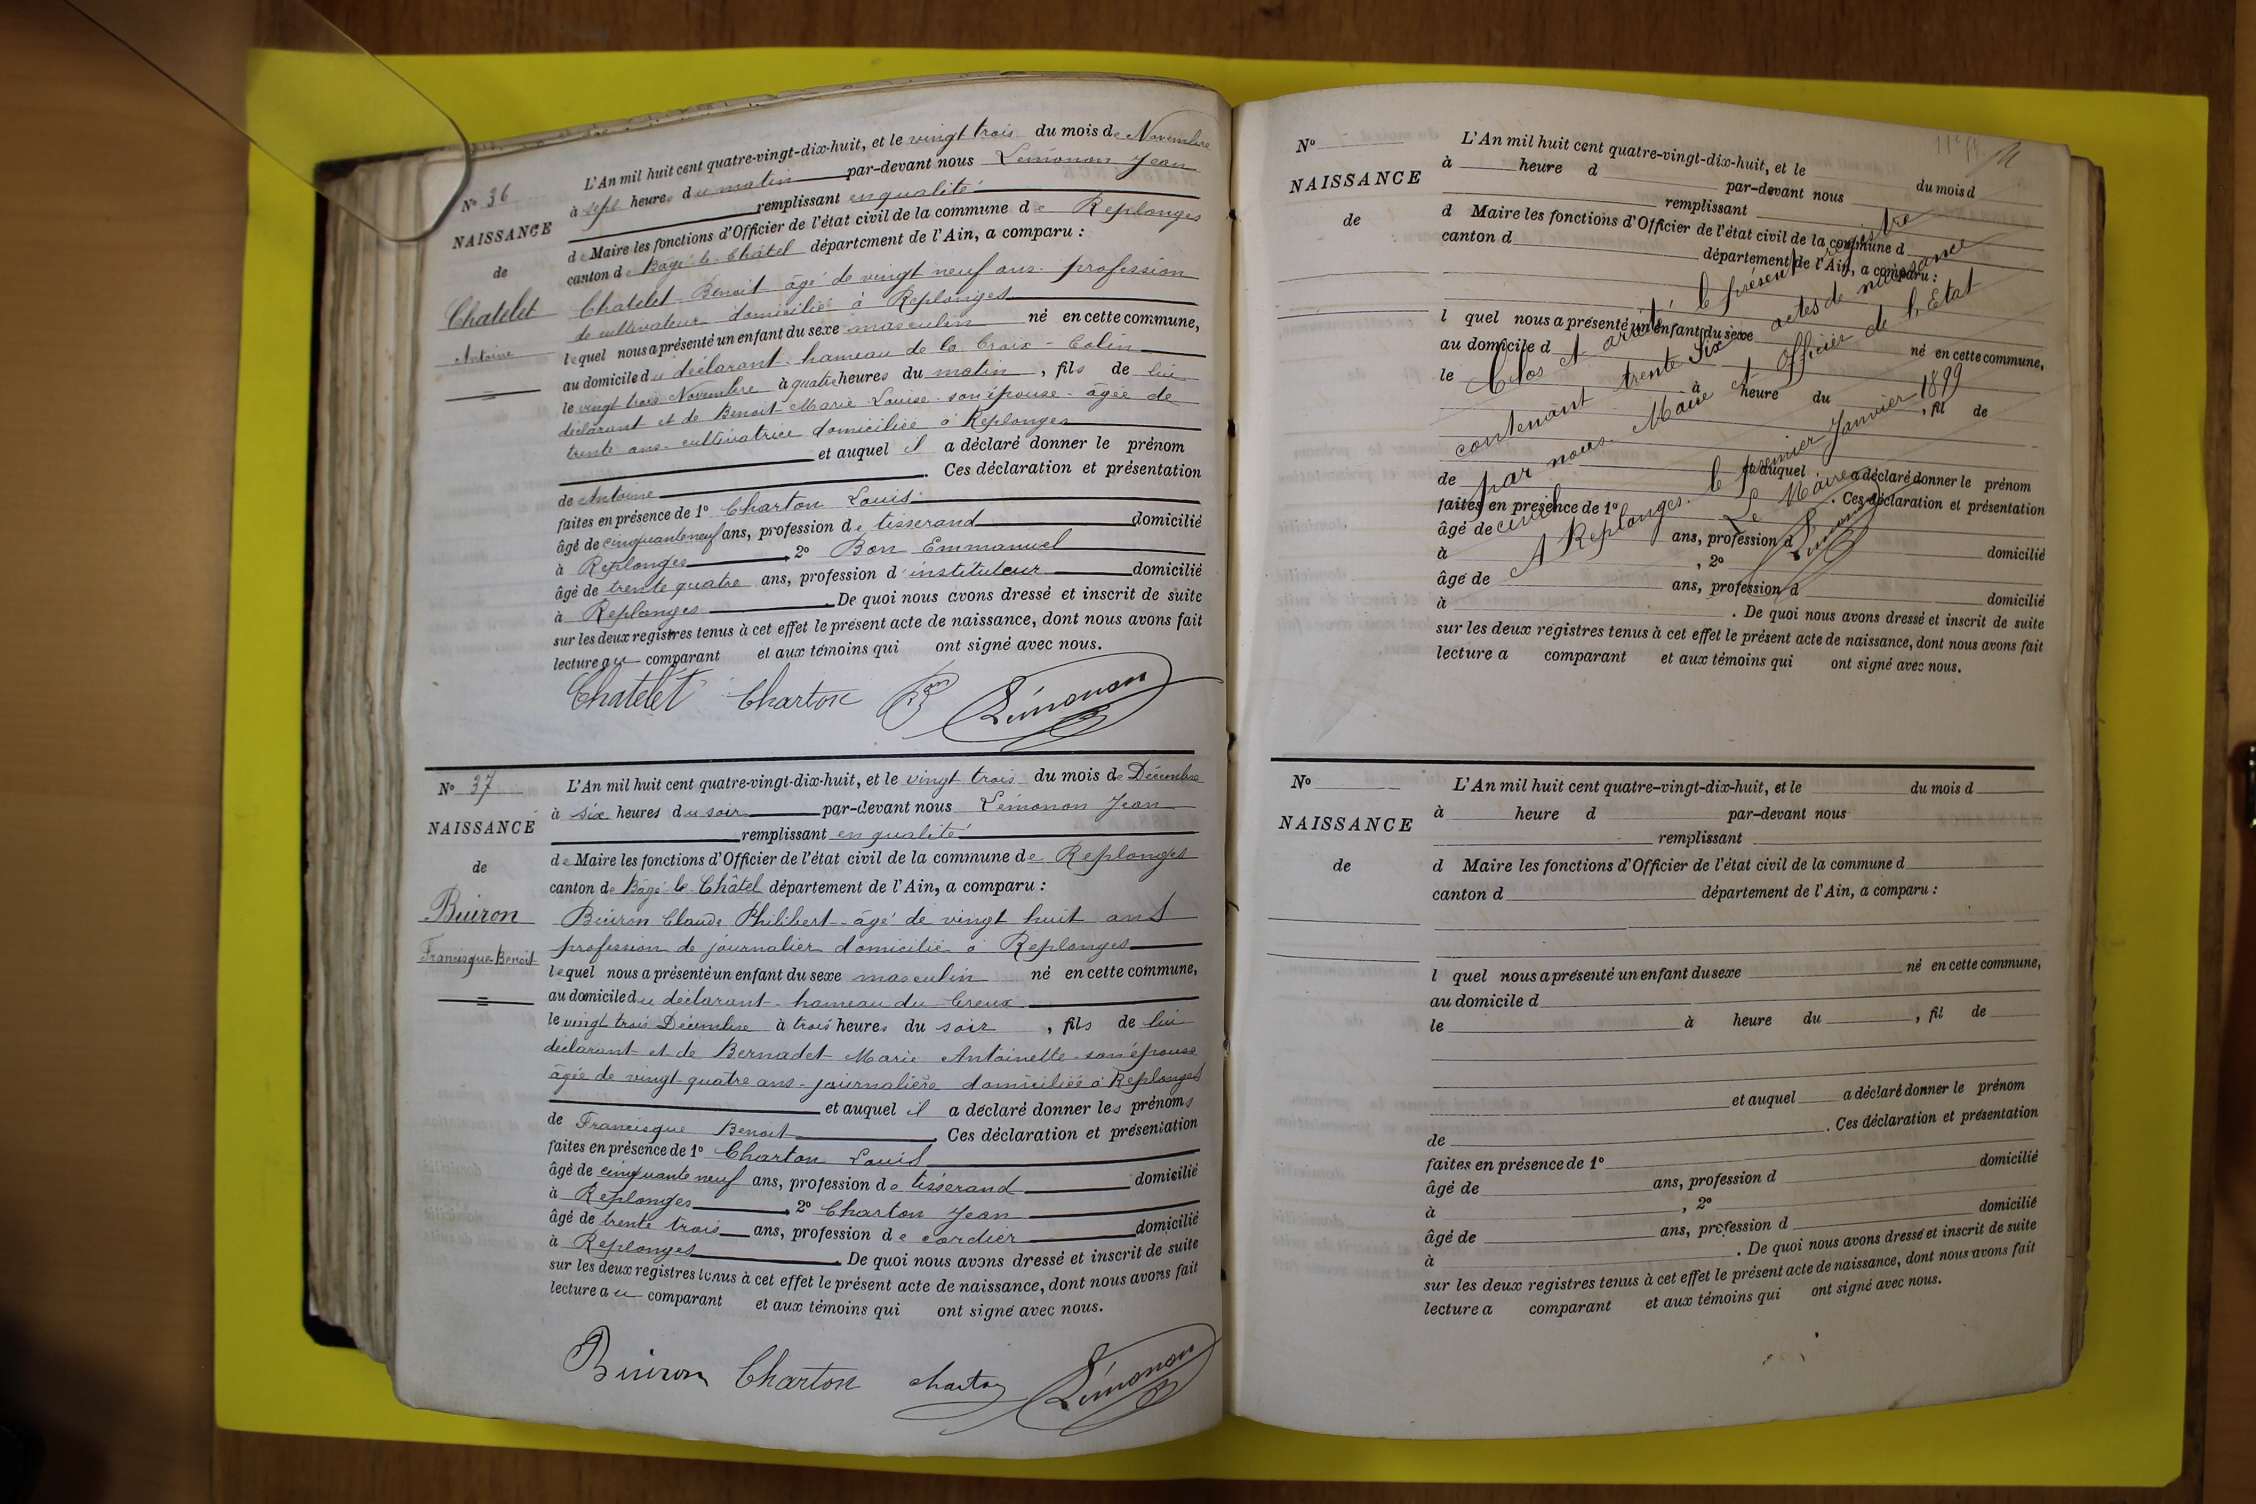 N° 36
NAISSANCE
de
Chatelet
Antoine
L'An mil huit cent quatre-vingt-dix-huit, et le vingt trois du mois de Novembre
à sept heures du matin par-devant nous Lémonon Jean
remplissant en qualité
de Maire les fonctions d'Officier de l'état civil de la commune de Replonges
canton de Bâgé-le-Châtel département de l'Ain, a comparu :
Chatelet Benoit âgé de vingt neuf ans profession
de cultivateur domicilié à Replonges
lequel nous a présenté un enfant du sexe masculin né en cette commune,
au domicile du déclarant hameau de la Croix-Colin
le vingt trois Novembre à quatre heures du matin, fils de lui
déclarant et de Benoit Marie Louise son épouse âgée de
trente ans cultivatrice domiciliée à Replonges
et auquel il a déclaré donner le prénom
de Antoine. Ces déclaration et présentation
faites en présence de 1° Charton Louis
âgé de cinquante neuf ans, profession de tisserand domicilié
à Replonges, 2° Bon Emmanuel
âgé de trente quatre ans, profession d'instituteur domicilié
à Replonges. De quoi nous avons dressé et inscrit de suite
sur les deux registres tenus à cet effet le présent acte de naissance, dont nous avons fait
lecture au comparant et aux témoins qui ont signé avec nous.
Chatelet Charton Bon Lémonon
N° 37
NAISSANCE
de
Buiron
Francisque Benoit
L'An mil huit cent quatre-vingt-dix-huit, et le vingt trois du mois de Décembre
à six heures du soir par-devant nous Lémonon Jean
remplissant en qualité
de Maire les fonctions d'Officier de l'état civil de la commune de Replonges
canton de Bâgé-le-Châtel département de l'Ain, a comparu :
Buiron Claude Philibert âgé de vingt huit ans
profession de journalier domicilié à Replonges
lequel nous a présenté un enfant du sexe masculin né en cette commune,
au domicile du déclarant hameau du Creux
le vingt trois Décembre à trois heures du soir, fils de lui
déclarant et de Bernadet Marie Antoinette son épouse
âgée de vingt-quatre ans journalière domiciliée à Replonges
et auquel il a déclaré donner les prénoms
de Francisque Benoit. Ces déclaration et présentation
faites en présence de 1° Charton Louis
âgé de cinquante neuf ans, profession de tisserand domicilié
à Replonges, 2° Charton Jean
âgé de trente trois ans, profession de cordier domicilié
à Replonges. De quoi nous avons dressé et inscrit de suite
sur les deux registres tenus à cet effet le présent acte de naissance, dont nous avons fait
lecture au comparant et aux témoins qui ont signé avec nous.
Buiron Charton charton Lémonon
N°
NAISSANCE
de
L'An mil huit cent quatre-vingt-dix-huit, et le du mois d
à heure d par-devant nous
remplissant
d Maire les fonctions d'Officier de l'état civil de la commune d
canton d département de l'Ain, a comparu :
l quel nous a présenté un enfant du sexe né en cette commune,
au domicile d
le à heure du , fil de
et auquel a déclaré donner le prénom
de . Ces déclaration et présentation
faites en présence de 1°
âgé de ans, profession d domicilié
à , 2°
âgé de ans, profession d domicilié
à . De quoi nous avons dressé et inscrit de suite
sur les deux registres tenus à cet effet le présent acte de naissance, dont nous avons fait
lecture a comparant et aux témoins qui ont signé avec nous.
Clos et arrêté le présent registre
contenant trente six actes de naissance
par nous Maire et Officier de l'Etat
civil
A Replonges le premier Janvier 1899
Le Maire
Lémonon
N°
NAISSANCE
de
L'An mil huit cent quatre-vingt-dix-huit, et le du mois d
à heure d par-devant nous
remplissant
d Maire les fonctions d'Officier de l'état civil de la commune d
canton d département de l'Ain, a comparu :
l quel nous a présenté un enfant du sexe né en cette commune,
au domicile d
le à heure du , fil de
et auquel a déclaré donner le prénom
de . Ces déclaration et présentation
faites en présence de 1°
âgé de ans, profession d domicilié
à , 2°
âgé de ans, profession d domicilié
à . De quoi nous avons dressé et inscrit de suite
sur les deux registres tenus à cet effet le présent acte de naissance, dont nous avons fait
lecture a comparant et aux témoins qui ont signé avec nous.